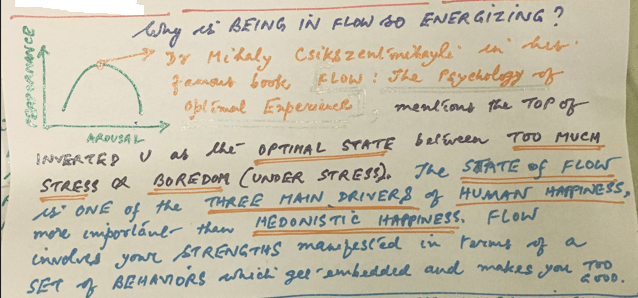 Why is BEING IN FLOW SO ENERGIZING?
PERFORMANCE
AROUSAL
Dr Mihaly Csikszentmihayli in his
famous book FLOW: The Psychology of
Optimal Experience mentions the TOP of
INVERTED U as the OPTIMAL STATE between TOO MUCH
STRESS or BOREDOM (UNDER STRESS). The STATE of FLOW
is ONE of the THREE MAIN DRIVERS of HUMAN HAPPINESS,
more important than HEDONISTIC HAPPINESS. FLOW
involves your STRENGTHS manifested in terms of a
SET of BEHAVIORS which get embedded and makes you TOO
GOOD.